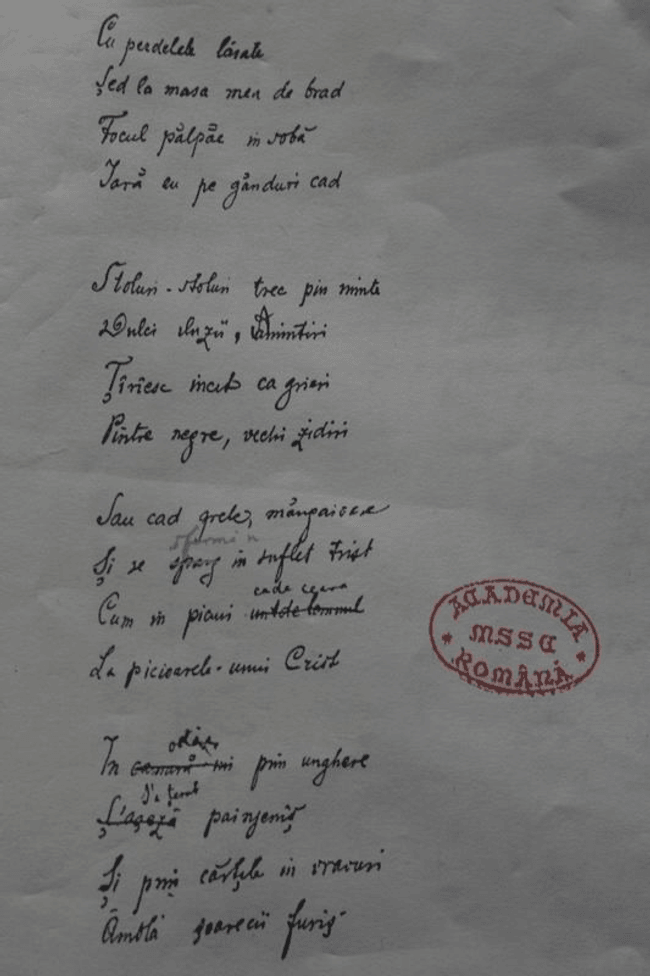 Cu perdelele lăsate
Șed la masa mea de brad
Focul pâlpâe in sobă
Iară eu pe gânduri cad
Stoluri-stoluri trec pin minte
Dulci iluzii, Amintiri
Țîrîesc incet ca grieri
Pintre negre, vechi zidiri
Sau cad grele, mângaioase
Și se sparg in suflet trist
Cum in picuri cade ceara
La picioarele unui Crist
In odae prin unghere
S'a țesut painjeniș
Și prin cărțile in vravuri
Âmblă șoarecii furiș
ACADEMIA
MSSE
ROMÂNĂ